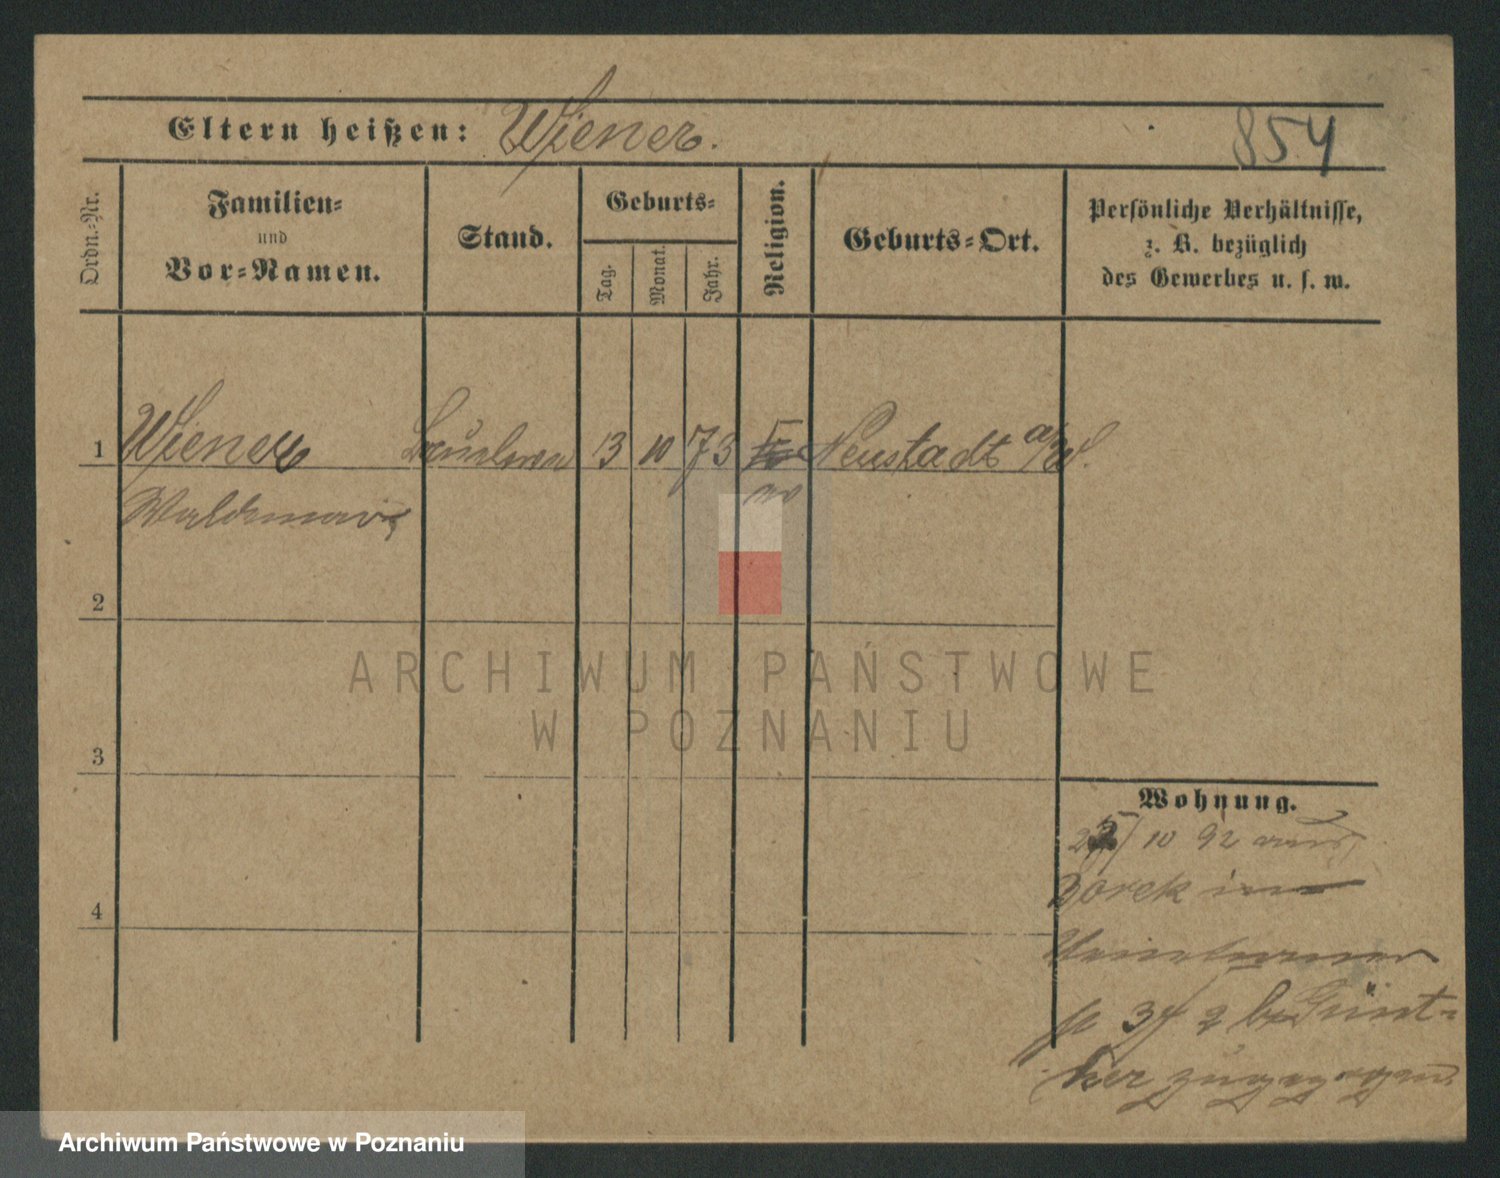 Eltern heißen: Wiener.
854
Ordn.-Nr.
Familien-
und
Vor-Namen.
Stand.
Geburts-
Tag.
Monat.
Jahr.
Religion.
Geburts-Ort.
Persönliche Verhältnisse,
z. B. bezüglich
des Gewerbes u. s. w.
1 Wiener 13 10 73 Neustadt a/W.
Waldemar
2
3
4
ARCHIWUM PAŃSTWOWE
W POZNANIU
Wohnung.
10 92 aus
Borek
37 2 b. Günt-
her zugezogen.
Archiwum Państwowe w Poznaniu